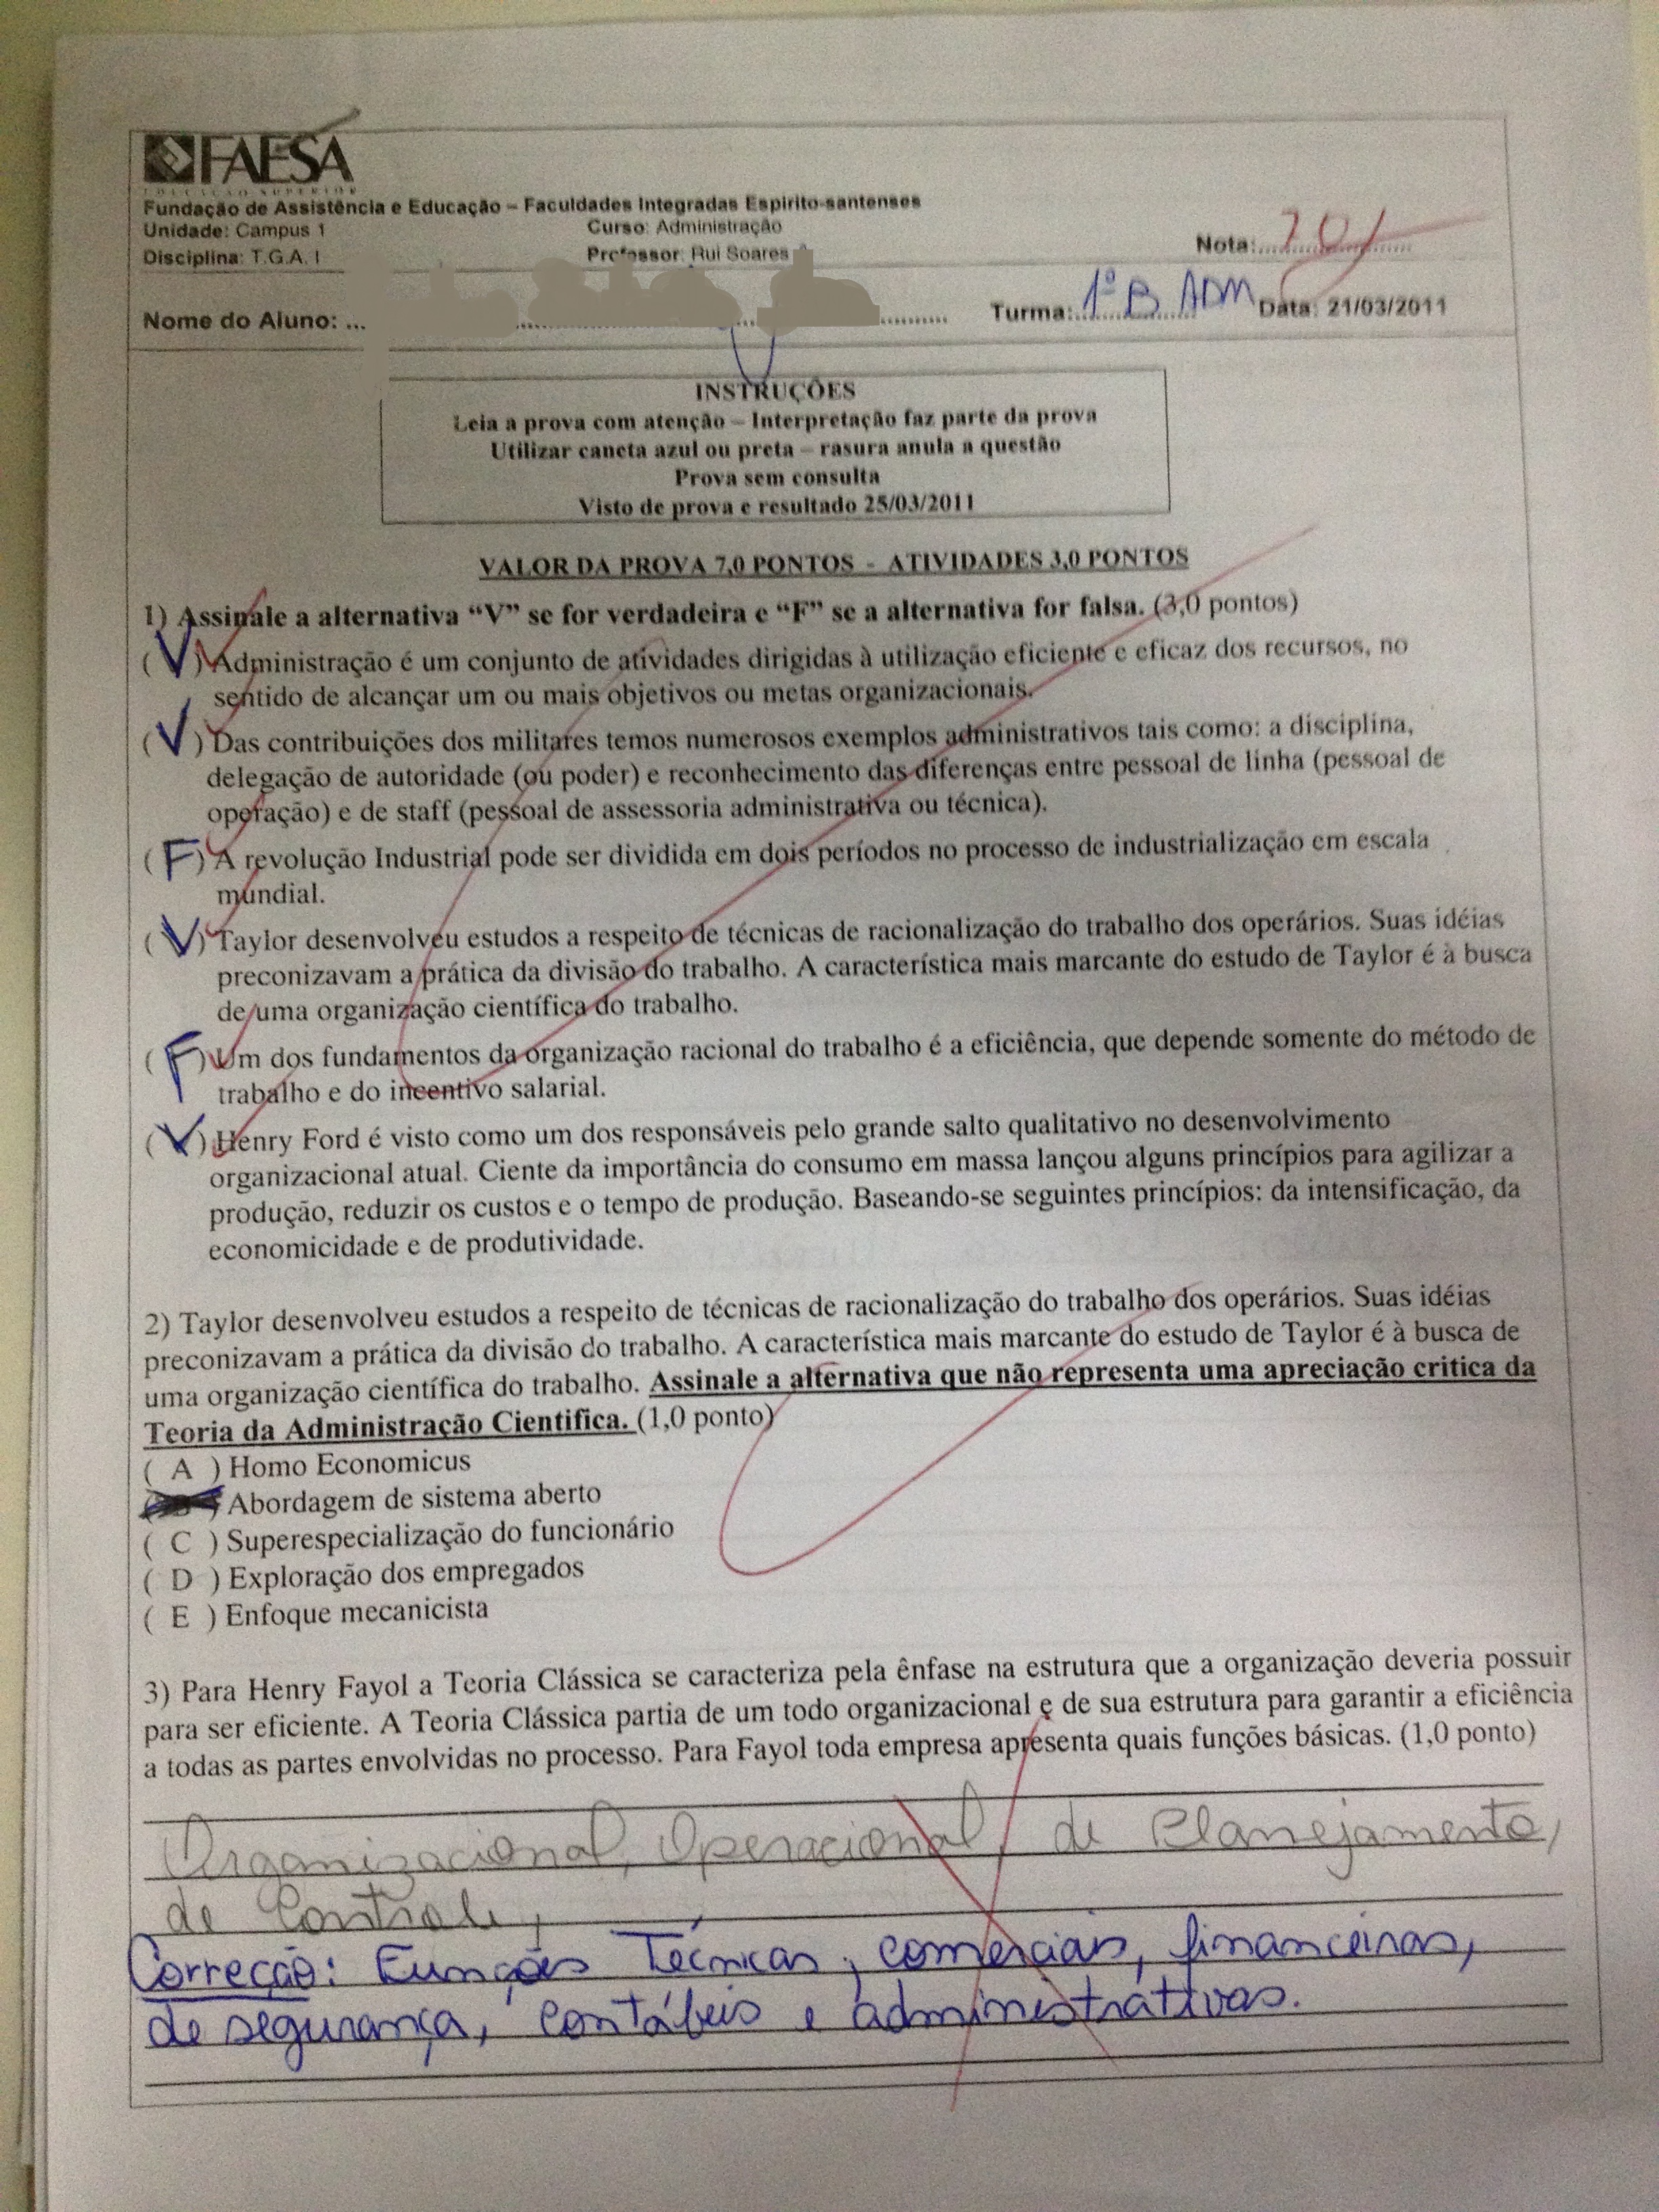 FAESA
EDUCAÇÃO SUPERIOR
Fundação de Assistência e Educação – Faculdades Integradas Espírito-santenses
Unidade: Campus 1 Curso: Administração
Disciplina: T.G.A. I Professor: Rui Soares Nota:
Nome do Aluno: ... Turma: 1º B ADM Data: 21/03/2011
INSTRUÇÕES
Leia a prova com atenção – Interpretação faz parte da prova
Utilizar caneta azul ou preta – rasura anula a questão
Prova sem consulta
Visto de prova e resultado 25/03/2011
VALOR DA PROVA 7,0 PONTOS - ATIVIDADES 3,0 PONTOS
1) Assinale a alternativa “V” se for verdadeira e “F” se a alternativa for falsa. (3,0 pontos)
(V) Administração é um conjunto de atividades dirigidas à utilização eficiente e eficaz dos recursos, no
sentido de alcançar um ou mais objetivos ou metas organizacionais.
(V) Das contribuições dos militares temos numerosos exemplos administrativos tais como: a disciplina,
delegação de autoridade (ou poder) e reconhecimento das diferenças entre pessoal de linha (pessoal de
operação) e de staff (pessoal de assessoria administrativa ou técnica).
(F) A revolução Industrial pode ser dividida em dois períodos no processo de industrialização em escala
mundial.
(V) Taylor desenvolveu estudos a respeito de técnicas de racionalização do trabalho dos operários. Suas idéias
preconizavam a prática da divisão do trabalho. A característica mais marcante do estudo de Taylor é à busca
de uma organização científica do trabalho.
(F) Um dos fundamentos da organização racional do trabalho é a eficiência, que depende somente do método de
trabalho e do incentivo salarial.
(V) Henry Ford é visto como um dos responsáveis pelo grande salto qualitativo no desenvolvimento
organizacional atual. Ciente da importância do consumo em massa lançou alguns princípios para agilizar a
produção, reduzir os custos e o tempo de produção. Baseando-se seguintes princípios: da intensificação, da
economicidade e de produtividade.
2) Taylor desenvolveu estudos a respeito de técnicas de racionalização do trabalho dos operários. Suas idéias
preconizavam a prática da divisão do trabalho. A característica mais marcante do estudo de Taylor é à busca de
uma organização científica do trabalho. Assinale a alternativa que não representa uma apreciação critica da
Teoria da Administração Cientifica. (1,0 ponto)
( A ) Homo Economicus
Abordagem de sistema aberto
( C ) Superespecialização do funcionário
( D ) Exploração dos empregados
( E ) Enfoque mecanicista
3) Para Henry Fayol a Teoria Clássica se caracteriza pela ênfase na estrutura que a organização deveria possuir
para ser eficiente. A Teoria Clássica partia de um todo organizacional e de sua estrutura para garantir a eficiência
a todas as partes envolvidas no processo. Para Fayol toda empresa apresenta quais funções básicas. (1,0 ponto)
Organizacional, Operacional, de Planejamento,
de Controle,
Correção: Funções Técnicas, comerciais, financeiras,
de segurança, contábeis e administrativas.